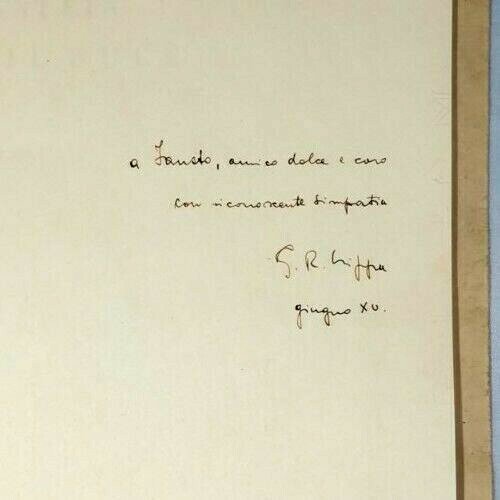 a Fausto, amico dolce e caro
con riconoscente simpatia
G. R.
giugno XV.